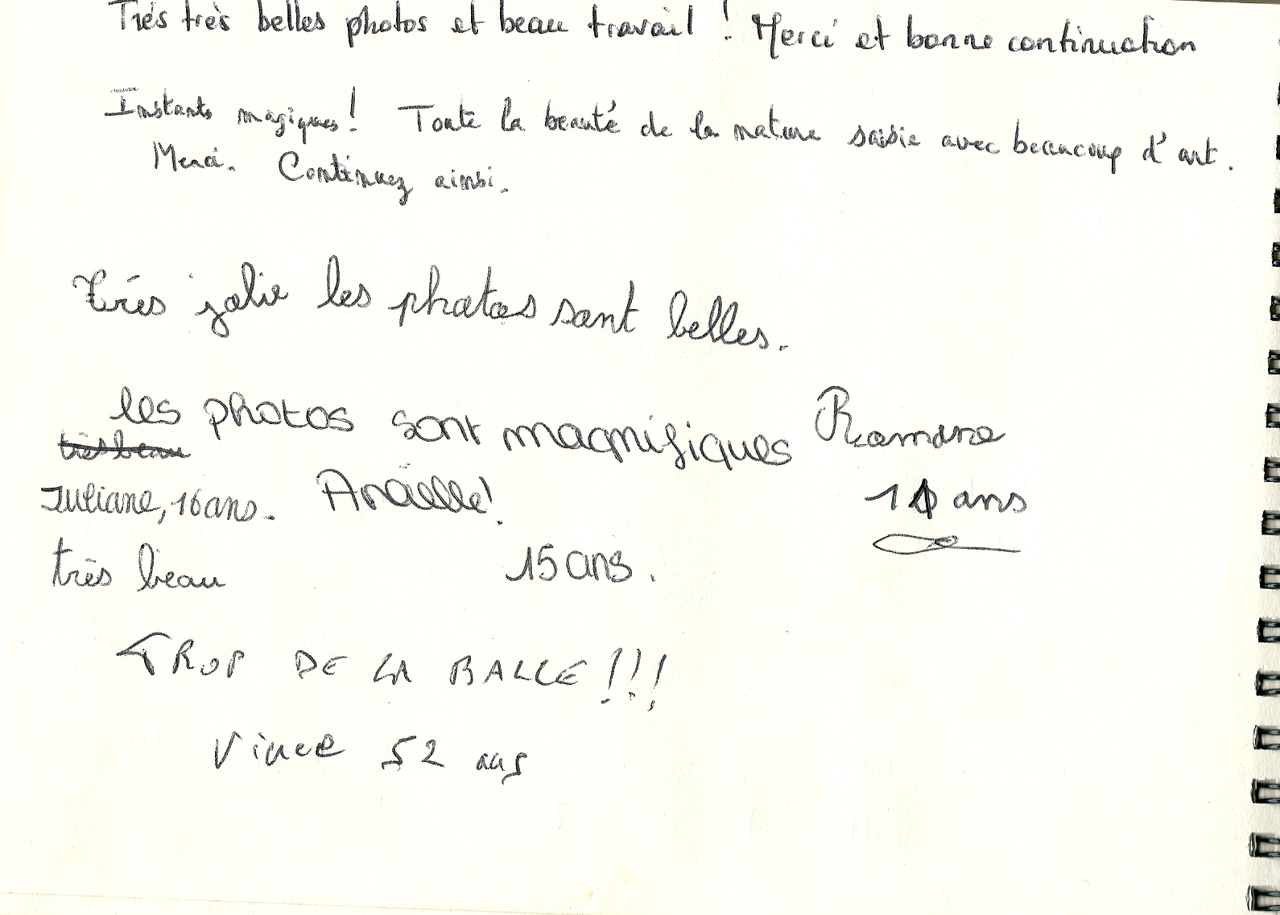 Très très belles photos et beau travail ! Merci et bonne continuation
Instants magiques ! Toute la beauté de la nature saisie avec beaucoup d'art.
Merci. Continuez ainsi.
très jolie les photos sont belles.
les photos sont magnifiques
très beau
Juliane, 16 ans.
très beau
Anaëlle !
15 ans.
ans
TROP DE LA BALLE !!!
Vince 52 ans